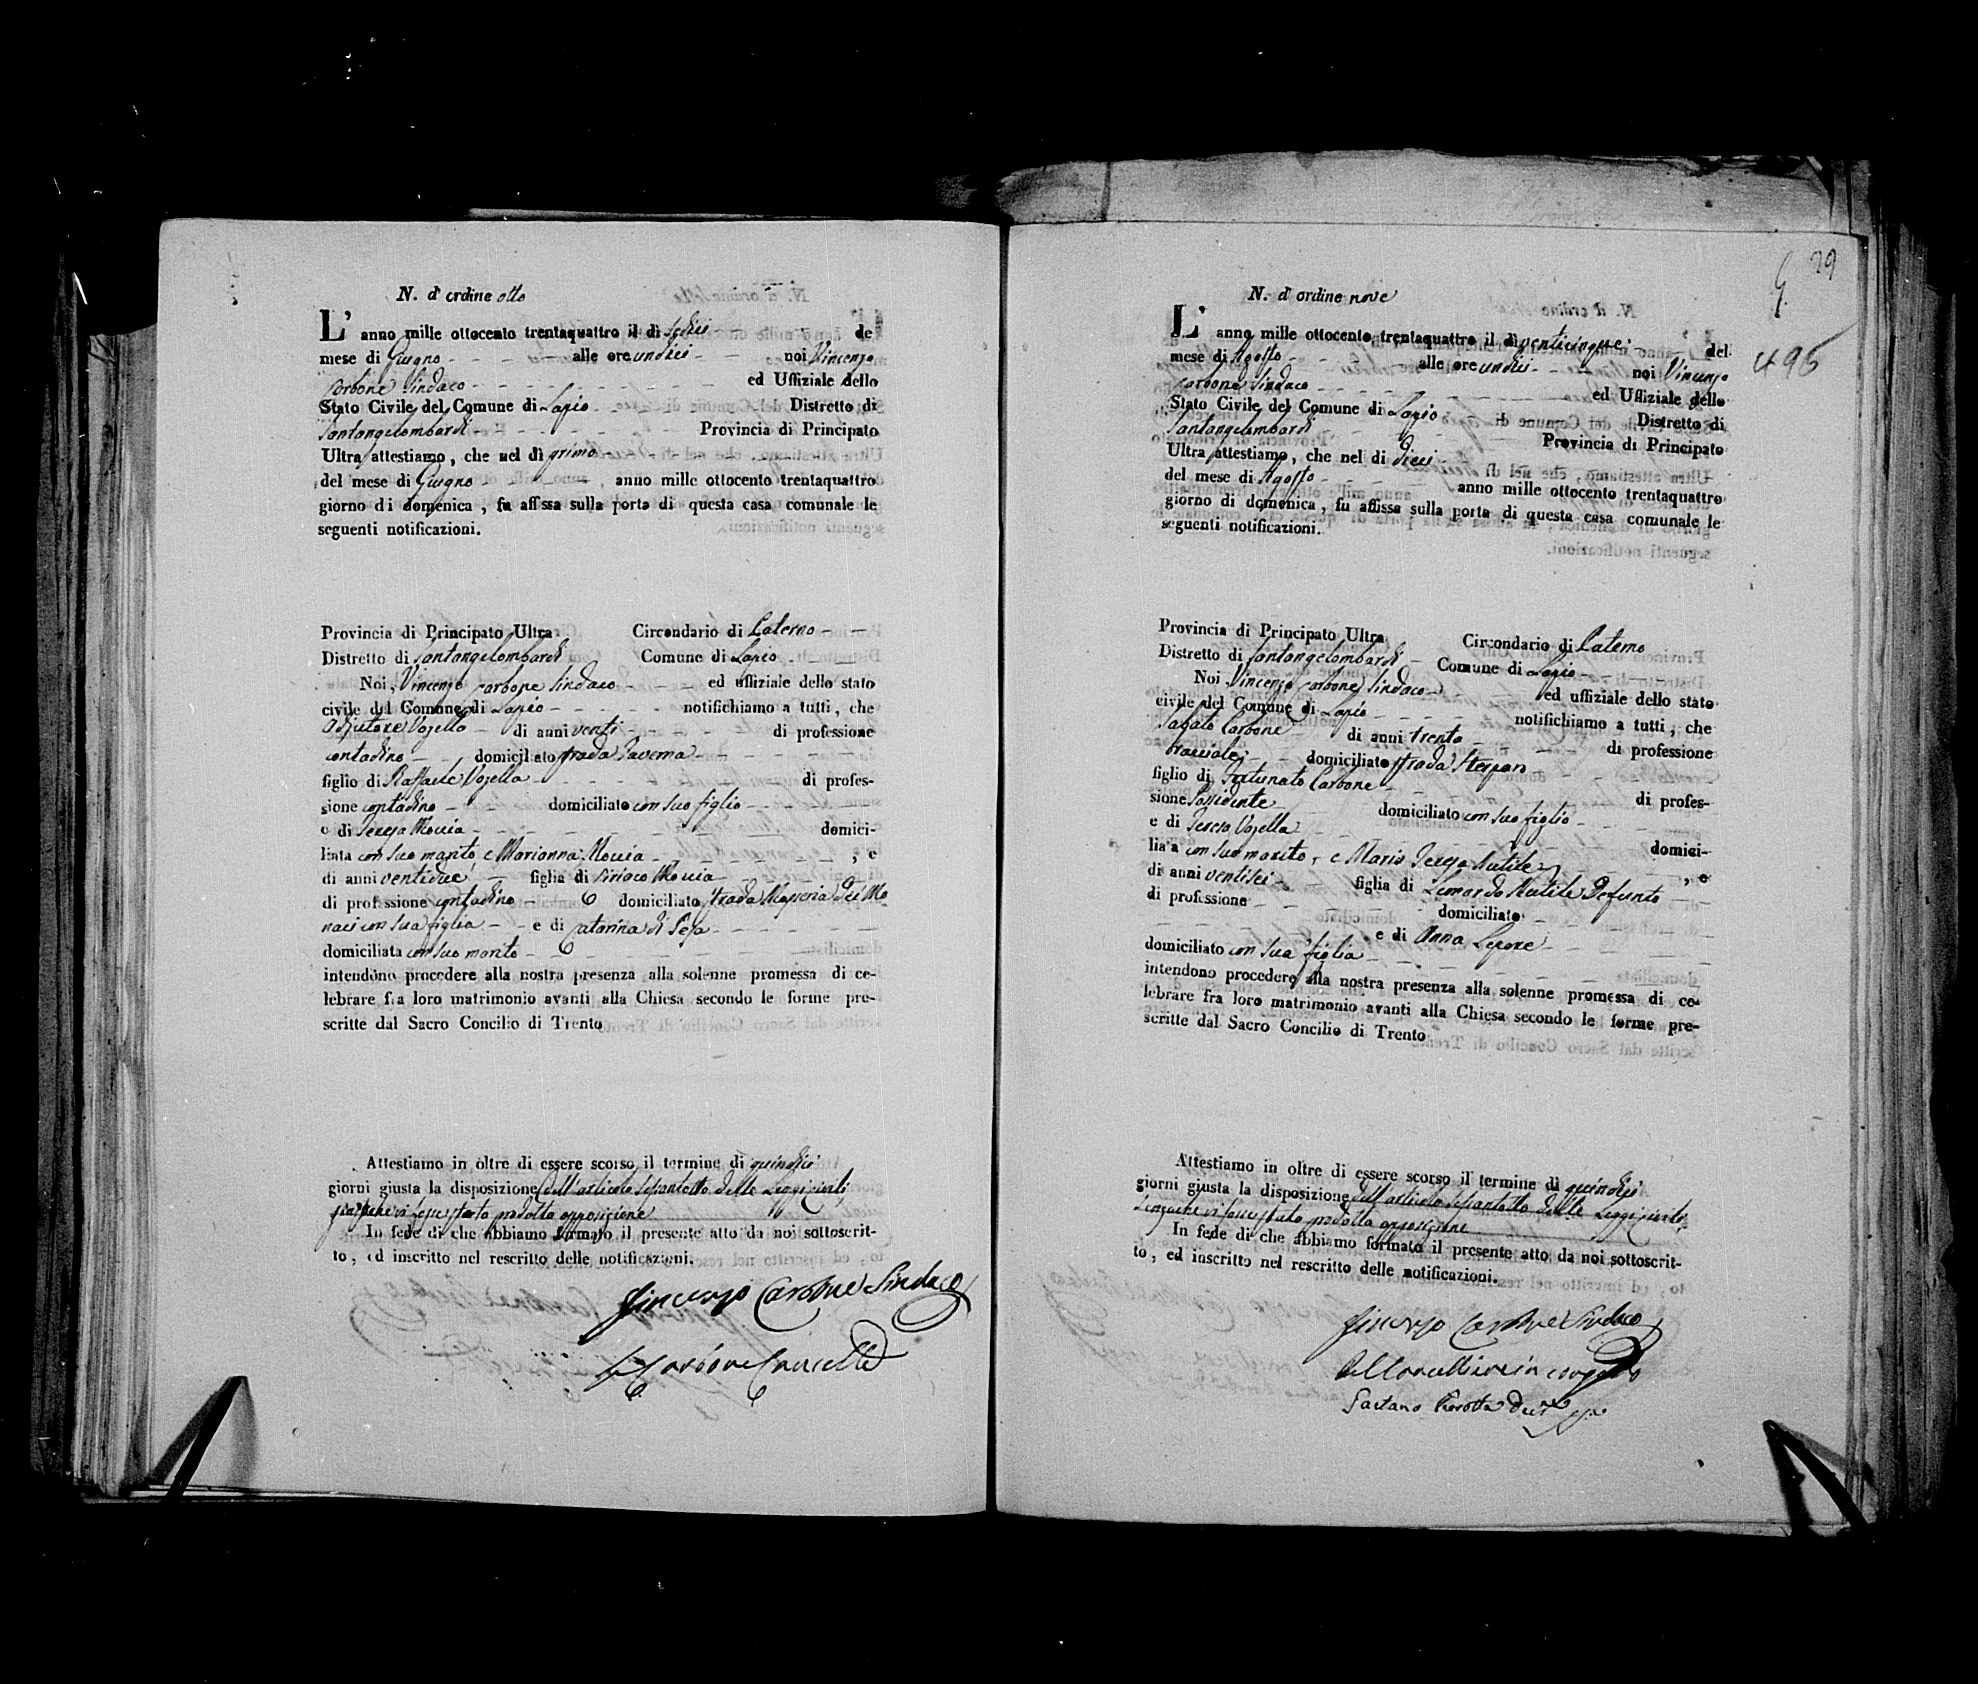 N. d'ordine otto
L'anno mille ottocento trentaquattro il dì sedici de
mese di Giugno alle ore undici noi Vincenzo
Carbone Sindaco ed Uffiziale dello
Stato Civile del Comune di Lapio Distretto di
Santangelombardi Provincia di Principato
Ultra attestiamo, che nel dì primo
del mese di Giugno anno mille ottocento trentaquattro
giorno di domenica, fu affissa sulla porta di questa casa comunale le
seguenti notificazioni.
Provincia di Principato Ultra Circondario di Paterno
Distretto di Santangelombardi Comune di Lapio
Noi, Vincenzo Carbone Sindaco ed uffiziale dello stato
civile del Comune di Lapio notifichiamo a tutti, che
Adjutore Vozella di anni venti di professione
contadino domiciliato strada Taverna
figlio di Raffaele Vozella di profes-
sione contadino domiciliato con suo figlio
e di Teresa Moccia domici-
liata con suo marito, e Marianna Moccia, e
di anni ventidue figlia di Ciriaco Moccia
di professione contadino domiciliato strada Masseria dei Mo
naci con sua figlia e di Catarina di
domiciliata con suo marito
intendono procedere alla nostra presenza alla solenne promessa di ce-
lebrare fra loro matrimonio avanti alla Chiesa secondo le forme pre-
scritte dal Sacro Concilio di Trento
Attestiamo in oltre di essere scorso il termine di quindici
giorni giusta la disposizione dell'articolo sessantotto delle Leggi civili,
senzache vi fosse stata prodotta opposizione
In fede di che abbiamo formato il presente atto da noi sottoscrit-
to, ed inscritto nel rescritto delle notificazioni.
Vincenzo Carbone Sindaco
Carbone Cancelliere
29
9.
495
N. d'ordine nove
L'anno mille ottocento trentaquattro il dì venticinque del
mese di Agosto alle ore undici noi Vincenzo
Carbone Sindaco ed Uffiziale dello
Stato Civile del Comune di Lapio Distretto di
Santangelombardi Provincia di Principato
Ultra attestiamo, che nel dì dieci
del mese di Agosto anno mille ottocento trentaquattro
giorno di domenica, fu affissa sulla porta di questa casa comunale le
seguenti notificazioni.
Provincia di Principato Ultra Circondario di Paterno
Distretto di Santangelombardi Comune di Lapio
Noi, Vincenzo Carbone Sindaco ed uffiziale dello stato
civile del Comune di Lapio notifichiamo a tutti, che
Sabato Carbone di anni trenta di professione
bracciale domiciliato strada
figlio di Fortunato Carbone di profes-
sione Possidente domiciliato con suo figlio
e di Teresa Vozella domici-
liata con suo marito, e Maria Teresa Mutile, e
di anni ventisei figlia di Leonardo Mutile Defunto
di professione domiciliato
e di Anna Lepore
domiciliato con sua figlia
intendono procedere alla nostra presenza alla solenne promessa di ce-
lebrare fra loro matrimonio avanti alla Chiesa secondo le forme pre-
scritte dal Sacro Concilio di Trento
Attestiamo in oltre di essere scorso il termine di quindici
giorni giusta la disposizione dell'articolo sessantotto delle Leggi civili,
senzache vi fosse stata prodotta opposizione
In fede di che abbiamo formato il presente atto da noi sottoscrit-
to, ed inscritto nel rescritto delle notificazioni.
Vincenzo Carbone Sindaco
Gaetano